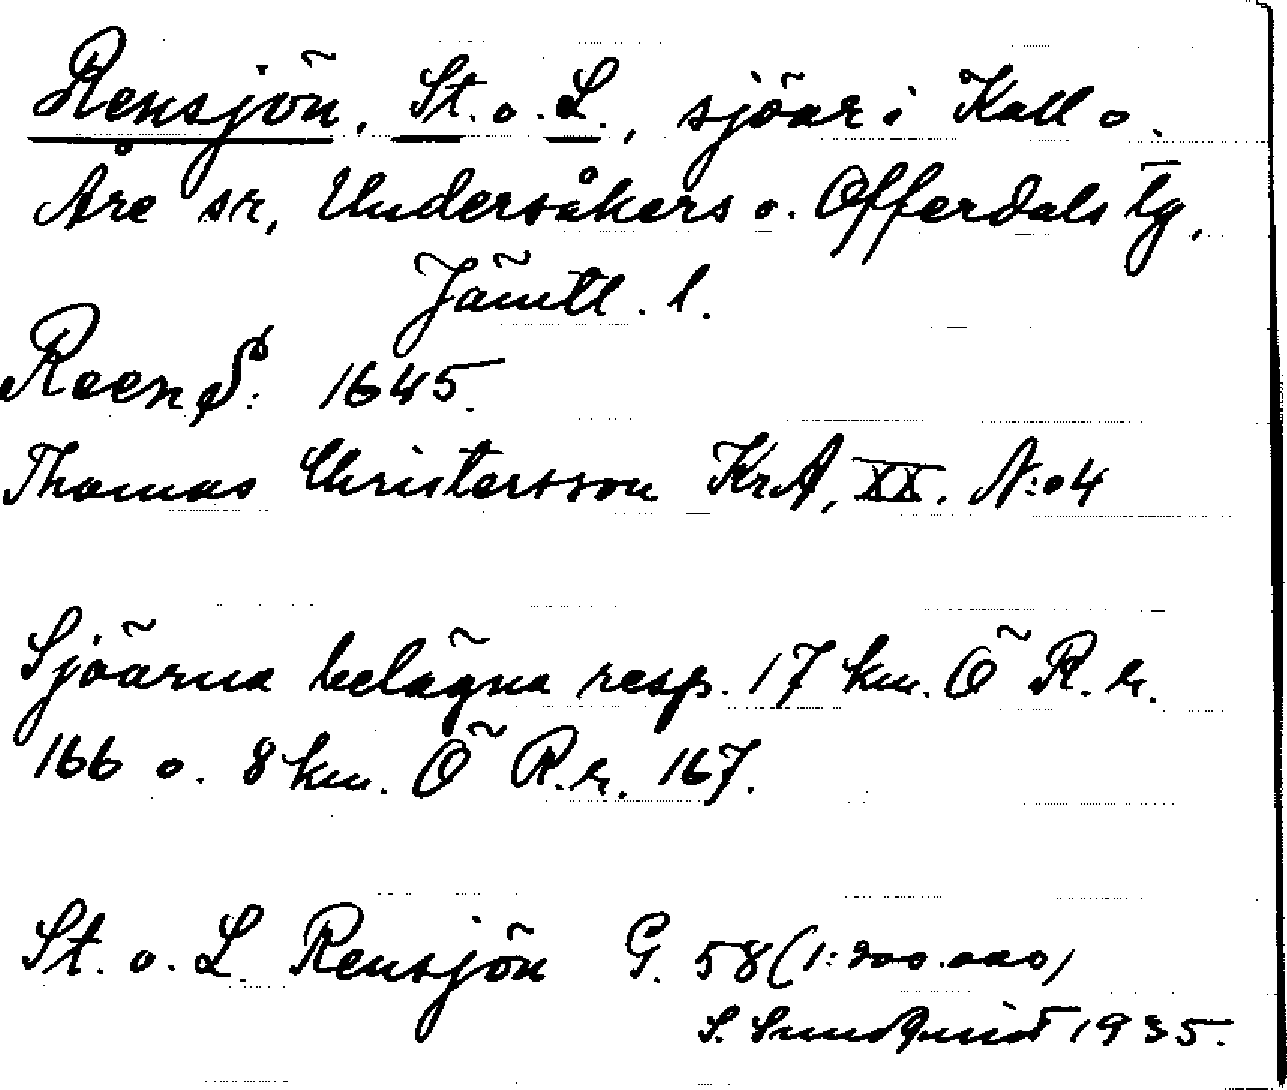 Rensjön, St. o. L., sjöar i Kall o.
Åre sr, Undersåkers o. Offerdals tg,
Jämtl. l.
Reen S: 1645.
Thomas Christersson KrA, XX. N:o 4
Sjöarna belägna resp. 17 km. Ö R.r.
166 o. 8 km. Ö R.r. 167.
St. o. L. Rensjön G. 58 (1:200.000)
S. Sundquist 1935.